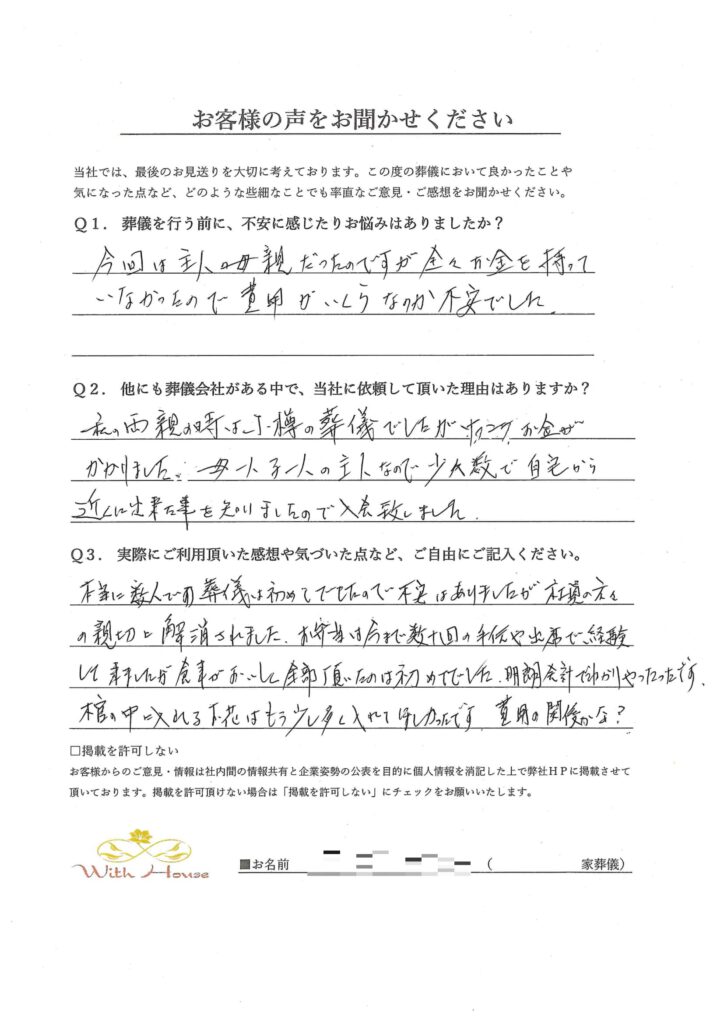 お客様の声をお聞かせください
当社では、最後のお見送りを大切に考えております。この度の葬儀において良かったことや
気になった点など、どのような些細なことでも率直なご意見・ご感想をお聞かせください。
Q1. 葬儀を行う前に、不安に感じたりお悩みはありましたか？
今回は主人の母親だったのですが全々お金を持って
いなかったので費用がいくらなのか不安でした。
Q2. 他にも葬儀会社がある中で、当社に依頼して頂いた理由はありますか？
私の両親の時は小樽の葬儀でしたが お金が
かかりました。母一人子一人の主人なので少人数で自宅から
近くに出来た事を知りましたので入会致しました。
Q3. 実際にご利用頂いた感想や気づいた点など、ご自由にご記入ください。
本当に数人での葬儀は初めてでしたので不安はありましたが社員の方々
の親切に解消されました。お弁当は今まで数十回の手伝や出席で経験
して来ましたが食事がおいしく全部頂いたのは初めてでした。明朗会計でわかりやすかったです。
棺の中に入れるお花はもう少し多く入れてほしかったです。費用の関係かな？
□掲載を許可しない
お客様からのご意見・情報は社内間の情報共有と企業姿勢の公表を目的に個人情報を消記した上で弊社HPに掲載させて
頂いております。掲載を許可頂けない場合は「掲載を許可しない」にチェックをお願いいたします。
With House
■お名前 （ 家葬儀）